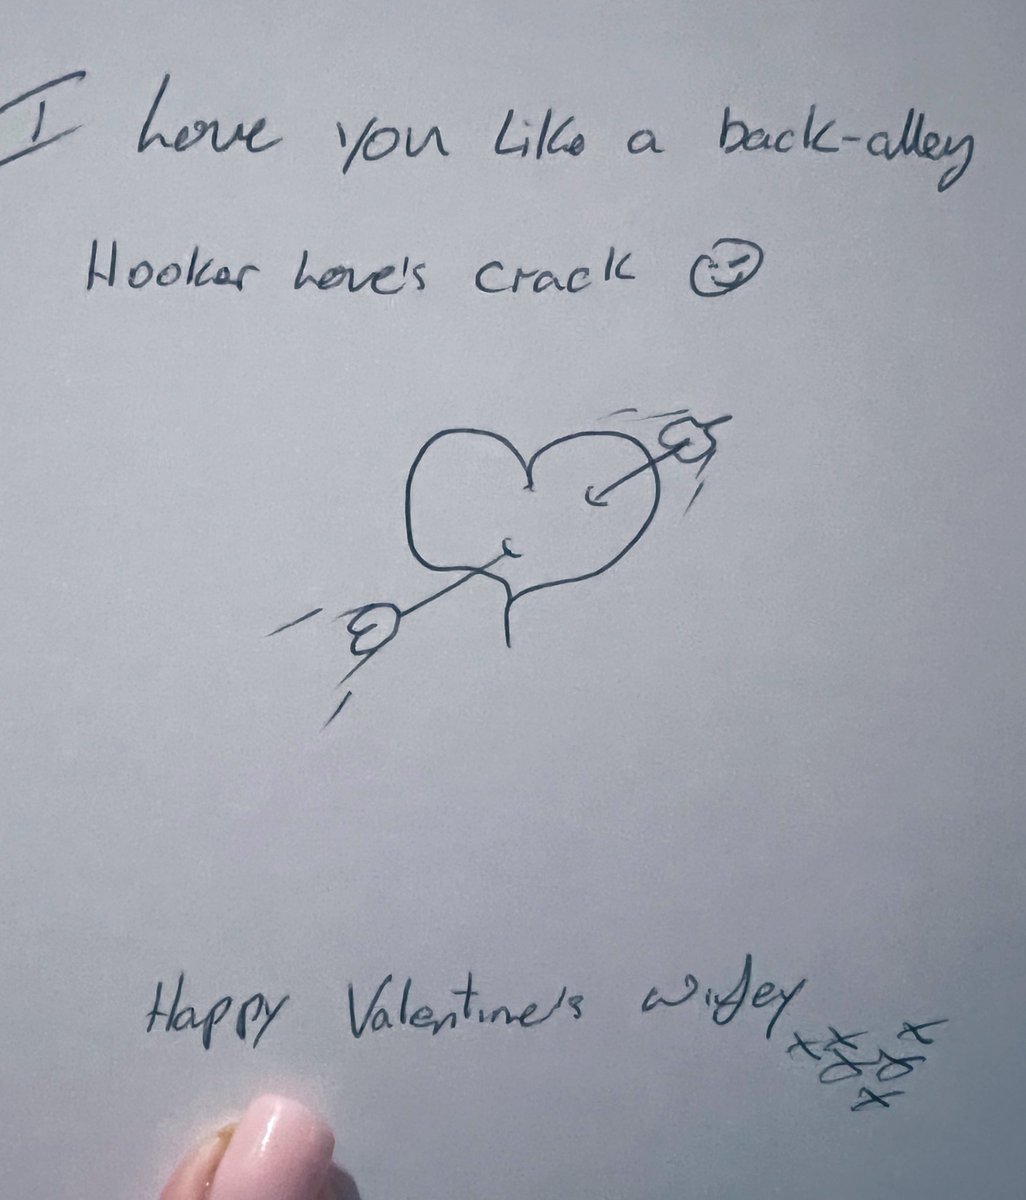 I Love you Like a back-alley
Hooker Love's crack
Happy Valentine's wifey
x x x x x x